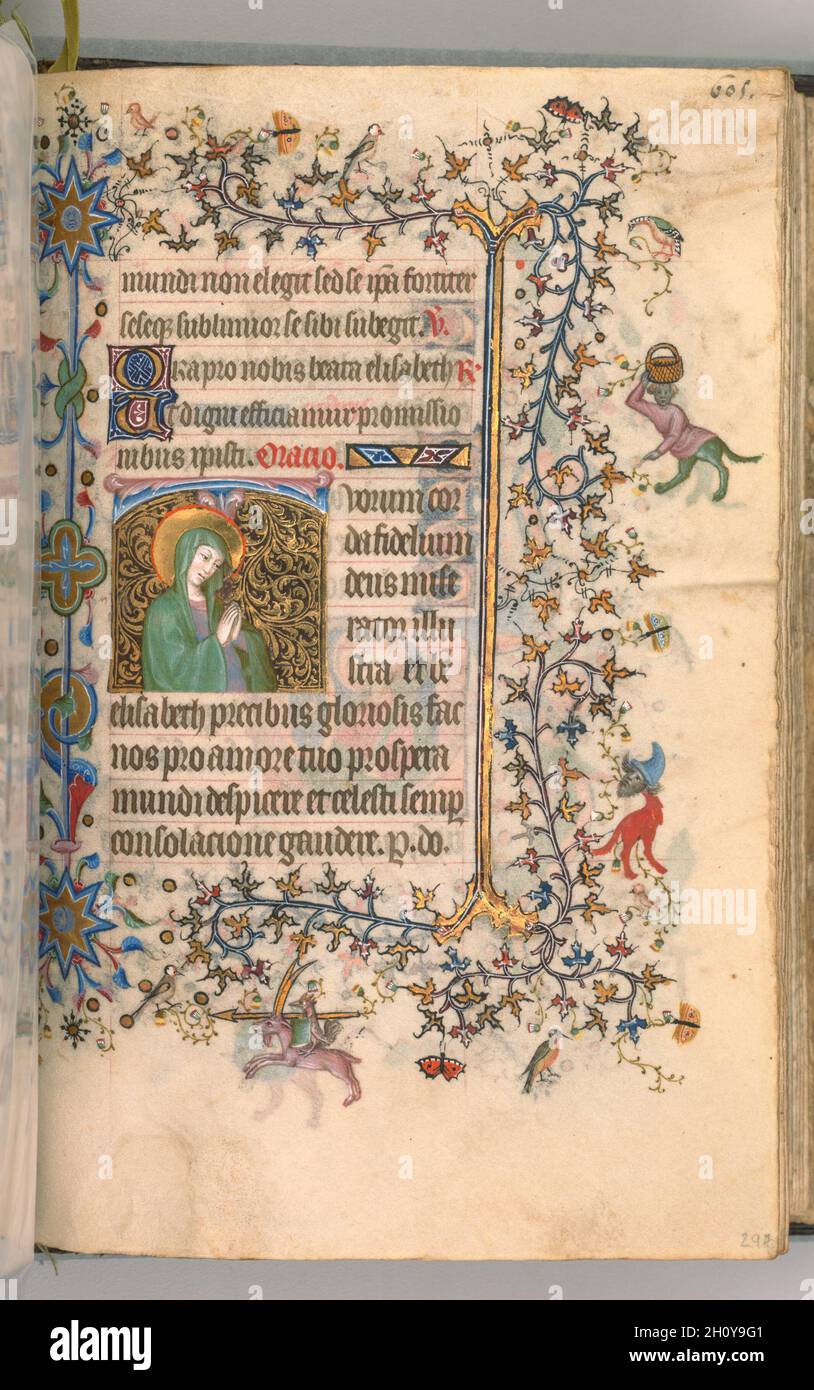 605.
mundi non elegit sed se ipã fortiter
seseqꝫ sublimior se sibi subegit. V.
Ora pro nobis beata elisabeth R.
Ut digni efficiamur promissio
nibus xp̃isti. Oracio.
vorum cor
da fidelium
deus mise
rator illu
stra et ie
elisabeth precibus gloriosis fac
nos pro amore tuo prospera
mundi despicere et celesti semp
consolacione gaudere. p. do.
298
alamy
Image ID: 2H0Y9G1
www.alamy.com